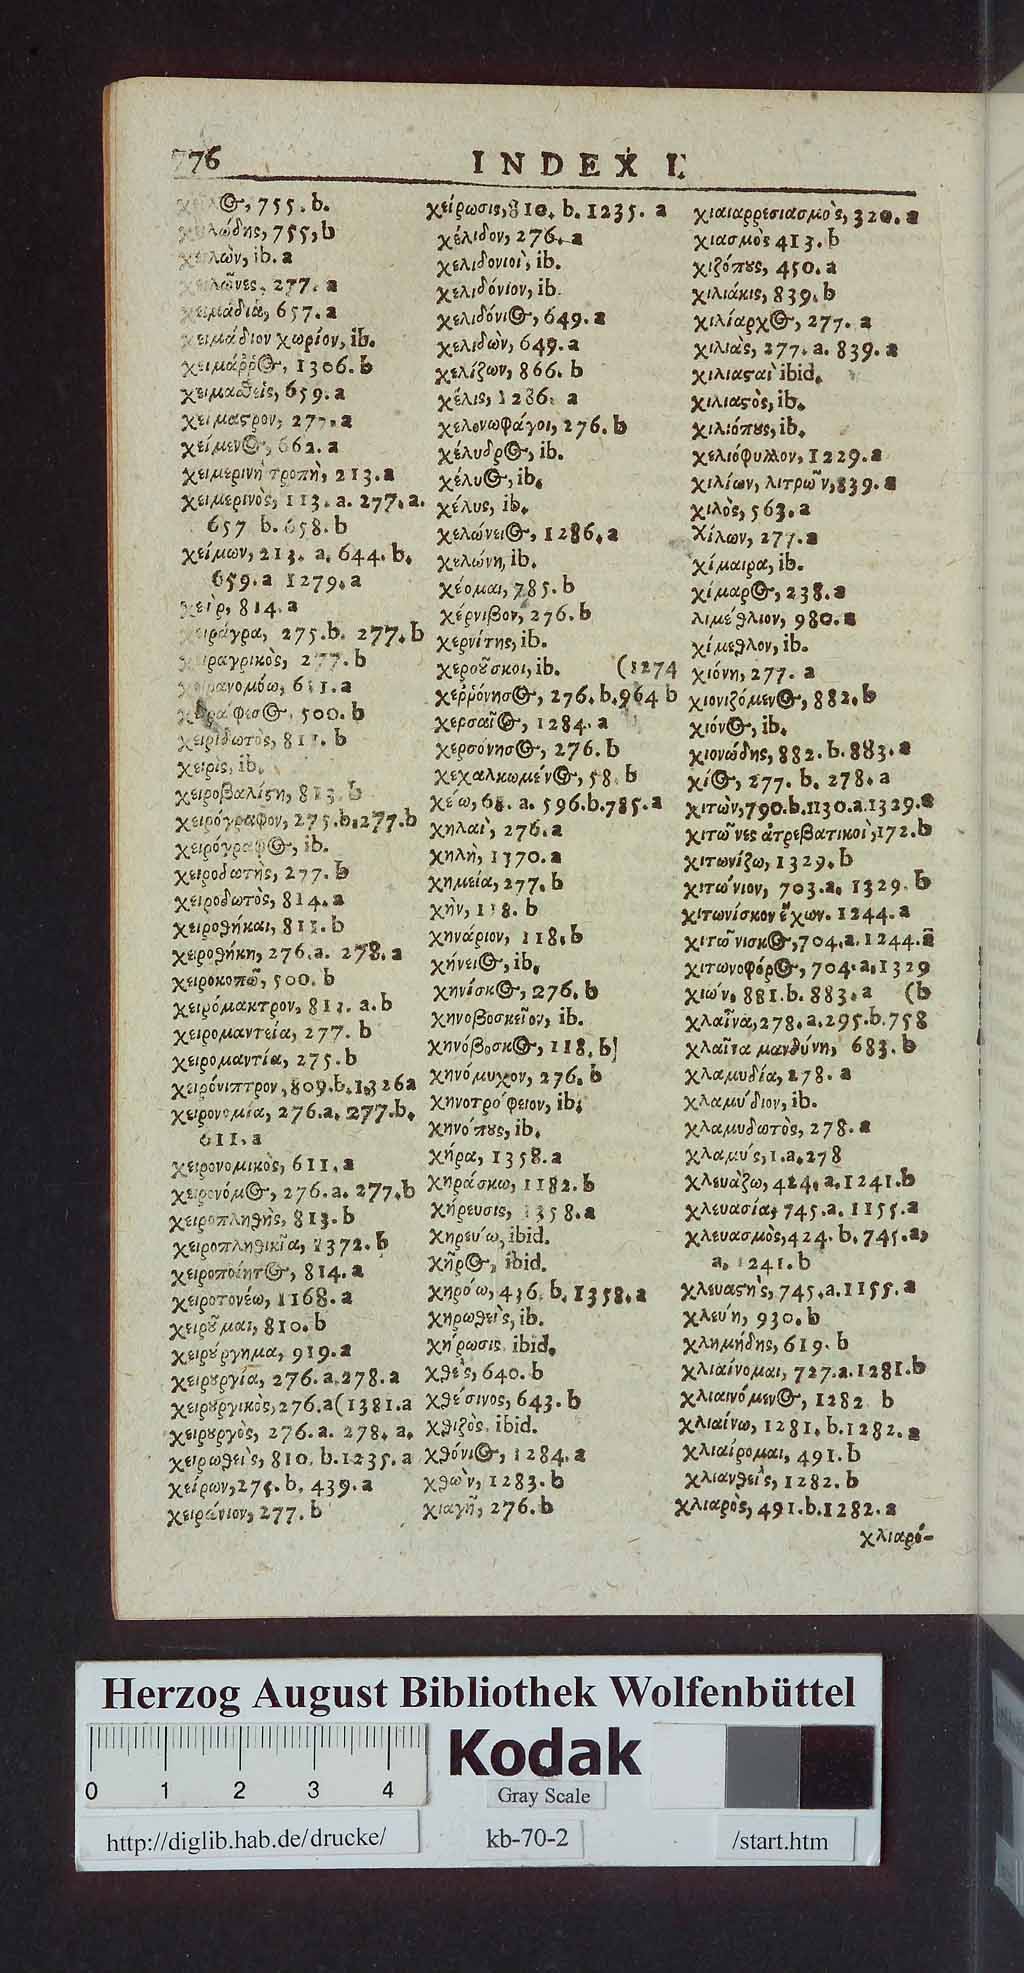 776 INDEX I.
χεῖλος, 755. b.
χειλώδης, 755, b
χειλὼν, ib. a
χειλῶνες, 277. a
χειμάδια, 657. a
χειμάδιον χωρίον, ib.
χειμάῤῥος, 1306. b
χειμαθεὶς, 659. a
χείμαστρον, 277. a
χείμενος, 662. a
χειμερινὴ τροπὴ, 213. a
χειμερινὸς, 113. a. 277. a.
657 b. 658. b
χείμων, 213. a. 644. b.
659. a 1279. a
χεὶρ, 814. a
χειράγρα, 275. b. 277. b
χειραγρικὸς, 277. b
χειρανομόω, 611. a
500. b
χειριδωτὸς, 811. b
χειρὶς, ib.
χειροβαλίστη, 813. b
χειρόγραφον, 275. b. 277. b
χειρόγραφος, ib.
χειροδωτὴς, 277. b
χειροδωτὸς, 814. a
χειροθήκαι, 811. b
χειροθήκη, 276. a. 278. a
χειροκοπῶ, 500. b
χειρόμακτρον, 811. a. b
χειρομαντεία, 277. b
χειρομαντία, 275. b
χειρόνιπτρον, 809. b. 1326 a
χειρονομία, 276. a. 277. b.
611. a
χειρονομικὸς, 611. a
χειρονόμος, 276. a. 277. b
χειροπληθὴς, 813. b
χειροπληθικῖα, 1372. b
χειροποίητος, 814. a
χειροτονέω, 1168. a
χειροῦμαι, 810. b
χειρούργημα, 919. a
χειρουργία, 276. a. 278. a
χειρουργικὸς, 276. a (1381. a
χειρουργὸς, 276. a. 278. a.
χειρωθεὶς, 810. b. 1235. a
χείρων, 275. b. 439. a
χειρώνιον, 277. b
χείρωσις, 810. b. 1235. a
χέλιδον, 276. a
χελιδονιοὶ, ib.
χελιδόνιον, ib.
χελιδόνιος, 649. a
χελιδὼν, 649. a
χελίζων, 866. b
χέλις, 1286. a
χελονωφάγοι, 276. b
χέλυδρος, ib.
χέλυος, ib.
χέλυς, ib.
χελώνειος, 1286. a
χελώνη, ib.
χέομαι, 785. b
χέρνιβον, 276. b
χερνίτης, ib.
χεροῦσκοι, ib. (1274
χεῤῥόνησος, 276. b. 964 b
χερσαῖος, 1284. a
χερσόνησος, 276. b
χεχαλκωμένος, 58. b
χέω, 68. a. 596. b. 785. a
χηλαὶ, 276. a
χηλὴ, 1370. a
χημεία, 277. b
χὴν, 118. b
χηνάριον, 118. b
χήνειος, ib.
χηνίσκος, 276. b
χηνοβοσκεῖον, ib.
χηνόβοσκος, 118. b]
χηνόμυχον, 276. b
χηνοτρόφειον, ib.
χηνόπους, ib.
χήρα, 1358. a
χηράσκω, 1182. b
χήρευσις, 1358. a
χηρεύω, ibid.
χῆρος, ibid.
χηρόω, 436. b. 1358. a
χηρωθεὶς, ib.
χήρωσις, ibid.
χθὲς, 640. b
χθέσινος, 643. b
χθιζὸς, ibid.
χθόνιος, 1284. a
χθὼν, 1283. b
χιαγῆ, 276. b
χιαιαρρεσιασμὸς, 320. a
χιασμὸς 413. b
χιζόπους, 450. a
χιλιάκις, 839. b
χιλίαρχος, 277. a
χιλιὰς, 277. a. 839. a
χιλιασταὶ ibid.
χιλιαστὸς, ib.
χιλιόπους, ib.
χελιόφυλλον, 1229. a
χιλίων, λιτρῶν, 839. a
χιλὸς, 563. a
Χίλων, 277. a
χίμαιρα, ib.
χίμαρος, 238. a
λιμέθλιον, 980. a
χίμεθλον, ib.
χιόνη, 277. a
χιονιζόμενος, 882. b
χιόνος, ib.
χιονώδης, 882. b. 883. a
χίος, 277. b. 278. a
χιτών, 790. b. 1130. a. 1329. a
χιτῶνες ἀτρεβατικοὶ, 172. b
χιτωνίζω, 1329. b
χιτώνιον, 703. a. 1329. b
χιτωνίσκον ἔχων. 1244. a
χιτῶνισκος, 704. a. 1244. a
χιτωνοφόρος, 704. a. 1329
χιών, 881. b. 883. a (b
χλαῖνα, 278. a. 295. b. 758
χλαῖνα μανθύνη, 683. b
χλαμυδία, 278. a
χλαμύδιον, ib.
χλαμυδωτὸς, 278. a
χλαμύς, 1. a. 278
χλευάζω, 424. a. 1241. b
χλευασία, 745. a. 1155. a
χλευασμὸς, 424. b. 745. a,
a. 1241. b
χλευαστὴς, 745. a. 1155. a
χλεύη, 930. b
χλημήδης, 619. b
χλιαίνομαι, 727. a. 1281. b
χλιαινόμενος, 1282 b
χλιαίνω, 1281. b. 1282. a
χλιαίρομαι, 491. b
χλιανθεὶς, 1282. b
χλιαρὸς, 491. b. 1282. a
χλιαρό-
Herzog August Bibliothek Wolfenbüttel
0 1 2 3 4
Kodak
Gray Scale
http://diglib.hab.de/drucke/ kb-70-2 /start.htm